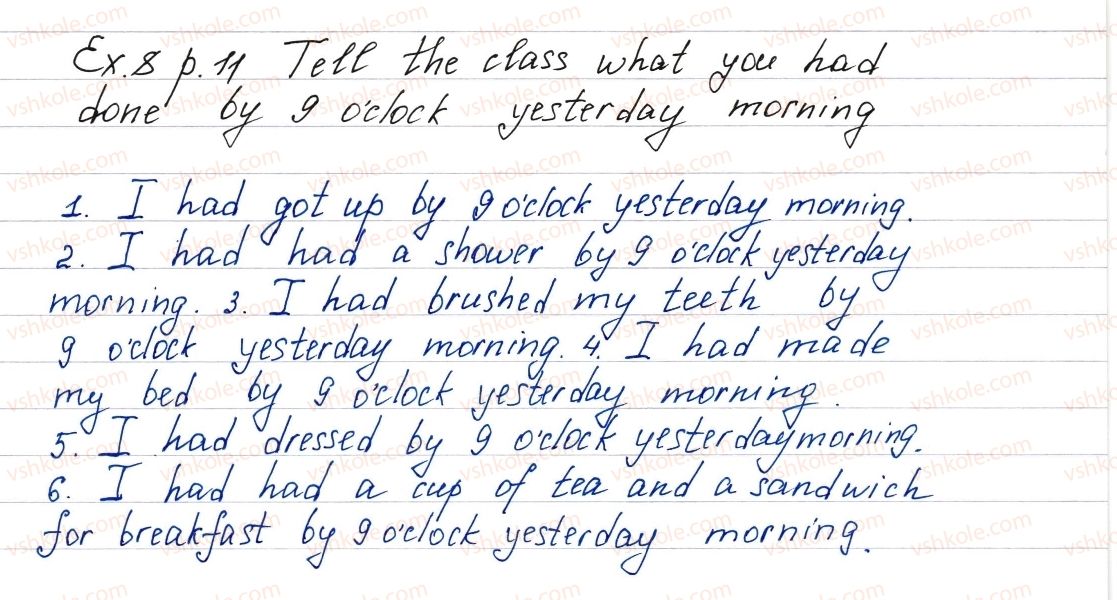 Ex. 8 p. 11 Tell the class what you had
done by 9 o'clock yesterday morning
1. I had got up by 9 o'clock yesterday morning.
2. I had had a shower by 9 o'clock yesterday
morning. 3. I had brushed my teeth by
9 o'clock yesterday morning. 4. I had made
my bed by 9 o'clock yesterday morning.
5. I had dressed by 9 o'clock yesterday morning.
6. I had had a cup of tea and a sandwich
for breakfast by 9 o'clock yesterday morning.